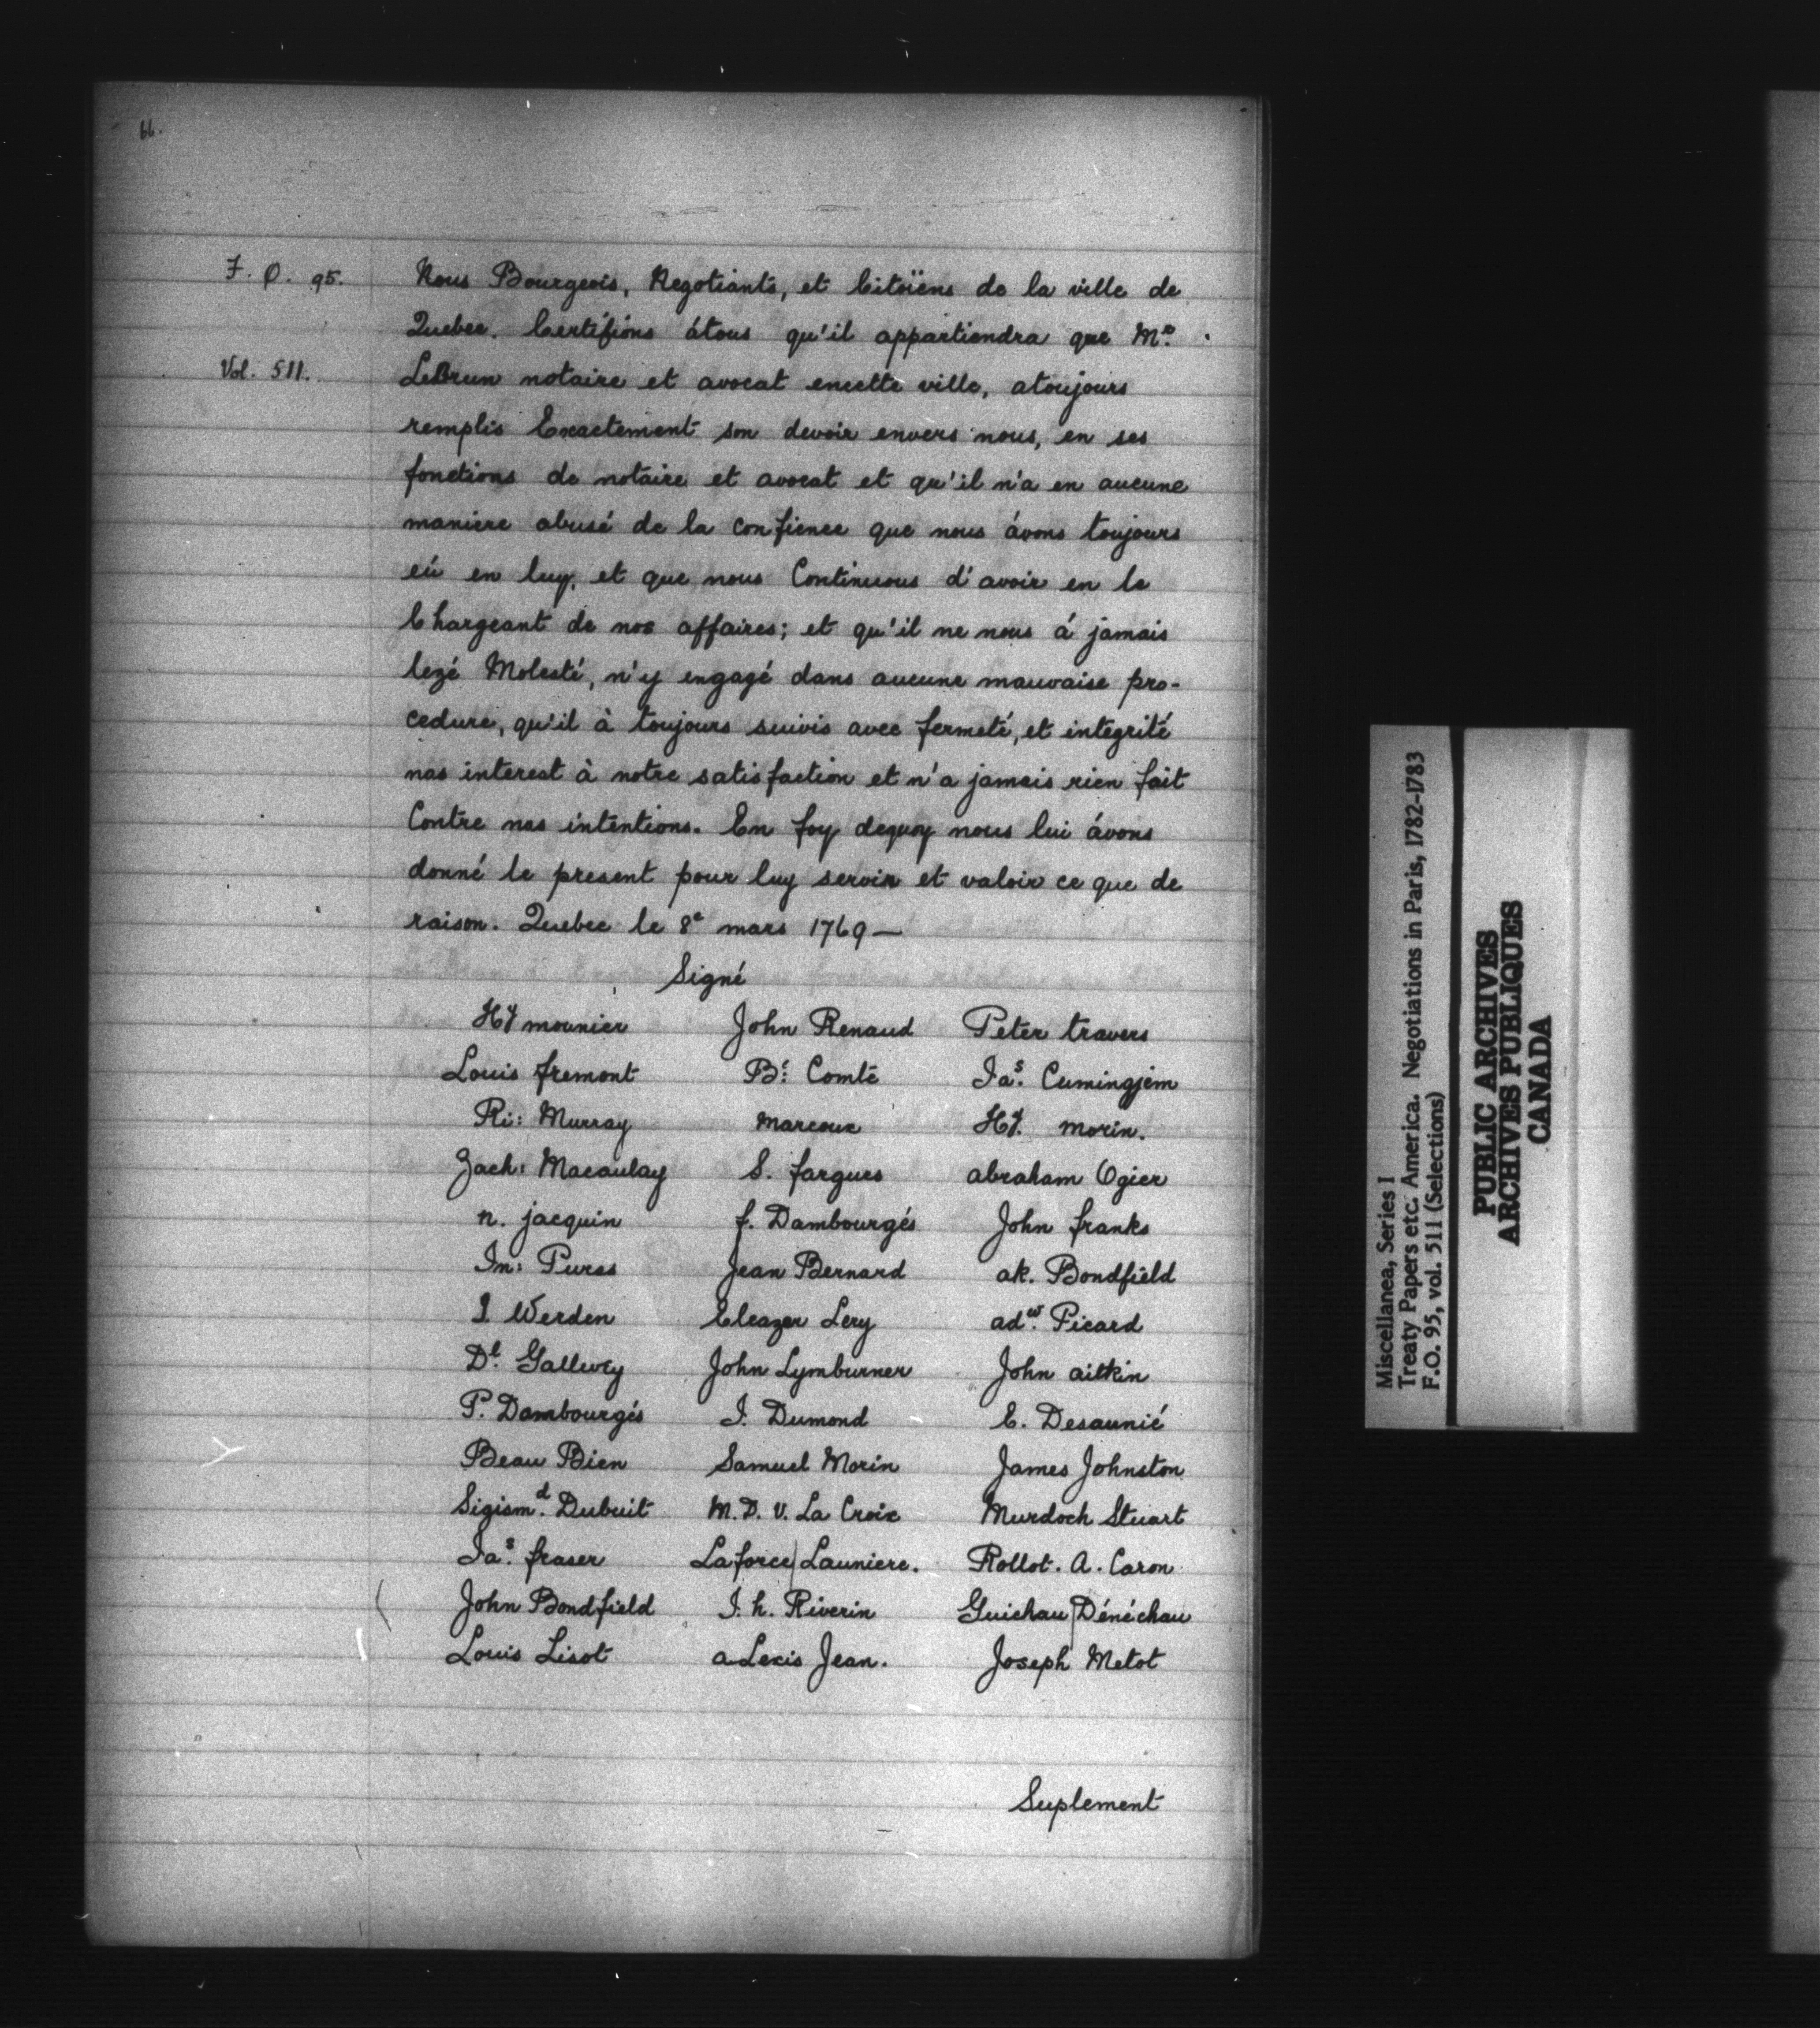 66.
F. O. 95.
Vol. 511.
Nous Bourgeois, Negotiants, et Citoïens de la ville de
Quebec. Certifions átous qu'il appartiendra que Mr.
LeBrun notaire et avocat encette ville, atoujours
remplis Exactement son devoir envers nous, en ses
fonctions de notaire et avocat et qu'il n'a en aucune
maniere abusé de la confience que nous ávons toujours
eú en luy, et que nous Continuous d'avoir en le
Chargeant de nos affaires; et qu'il ne nous á jamais
lezé Molesté, n'y engagé dans aucune mauvaise pro-
cedure, qu'il à toujours suivis avec fermeté, et integrité
nos interest à notre satisfaction et n'a jamais rien fait
Contre nos intentions. En foy dequoy nous lui ávons
donné le present pour luy servir et valoir ce que de
raison. Quebec le 8e mars 1769 —
Signé
Hy mounier John Renaud Peter travers
Louis fremont Bt: Comte Jas. Cumingjem
Ri: Murray Marcoux Hy. morin.
Zach: Macaulay S. fargues abraham Ogier
n. jacquin f. Dambourgés John franks
Jn: Purss Jean Bernard ak. Bondfield
J. Werden Eleazer Levy adw. Picard
Dl. Gallwey John Lymburner John aitkin
P. Dambourgés J. Dumond E. Desaunié
Beau Bien Samuel Morin James Johnston
Sigismd. Dubuit M. D. V. La Croix Murdoch Stuart
Jas. fraser Laforce | Launiere. Rollot. A. Caron
John Bondfield J. h. Riverin Guichau | Dénéchau
Louis Lisot aLexis Jean. Joseph Metot
Suplement
Miscellanea, Series I
Treaty Papers etc. America. Negotiations in Paris, 1782-1783
F.O. 95, vol. 511 (Selections)
PUBLIC ARCHIVES
ARCHIVES PUBLIQUES
CANADA